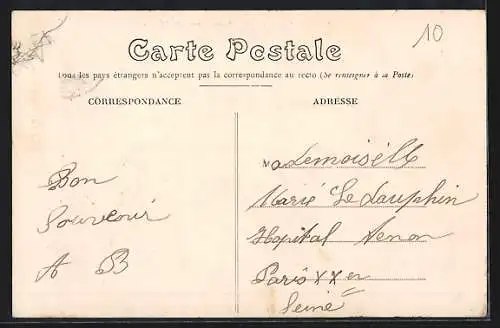 10
Carte Postale
Tous les pays étrangers n'acceptent pas la correspondance au recto (Se renseigner à la Poste)
CORRESPONDANCE
ADRESSE
Mademoiselle
Marie Le Dauphin
Hopital Tenon
Paris XX er
Seine
Bon
Souvenir
A B